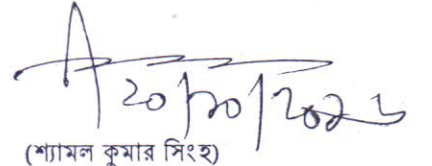 ২০/১০/২০২১
(শ্যামল কুমার সিংহ)